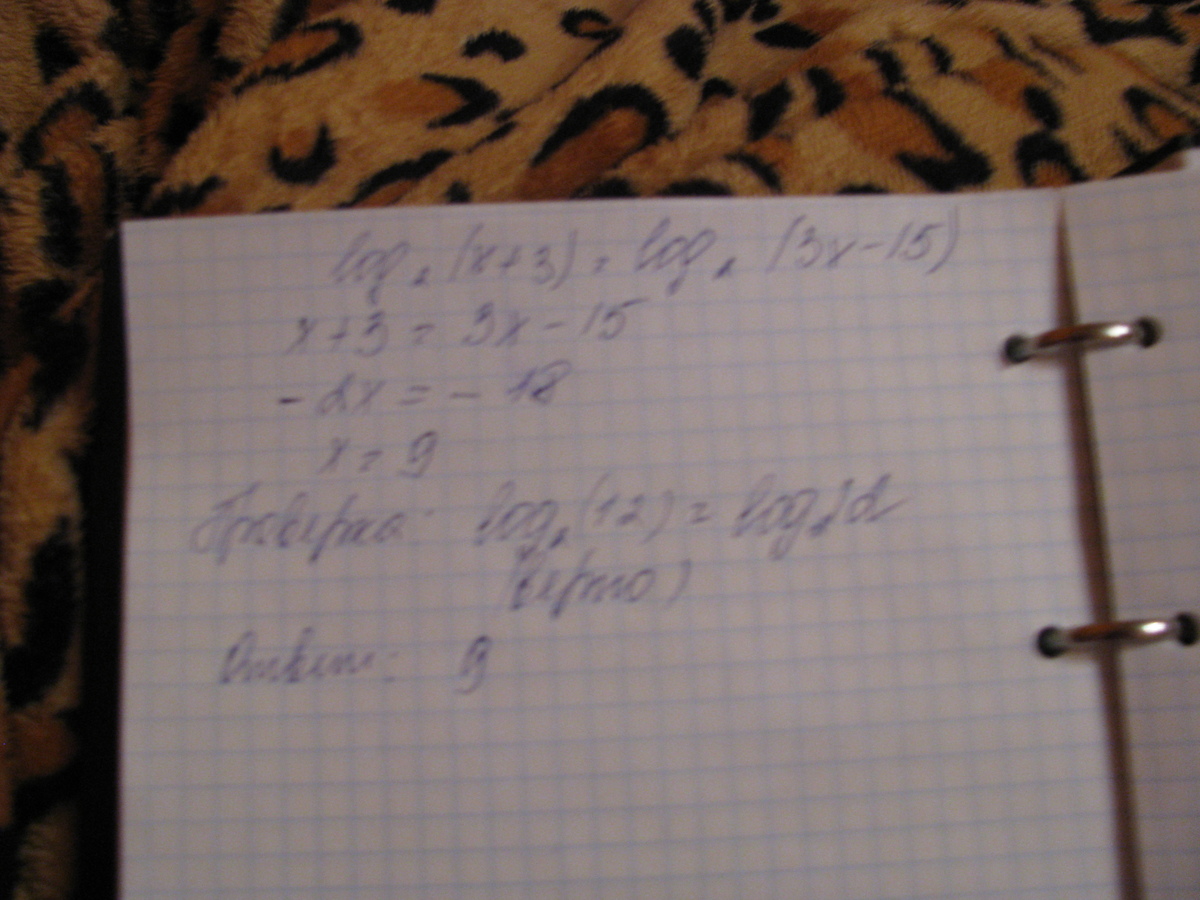 log₂ (x+3) = log₂ (3x-15)
x+3 = 3x - 15
- 2x = - 18
x = 9
Проверка: log₂(12) = log₂12
(верно)
Ответ: 9